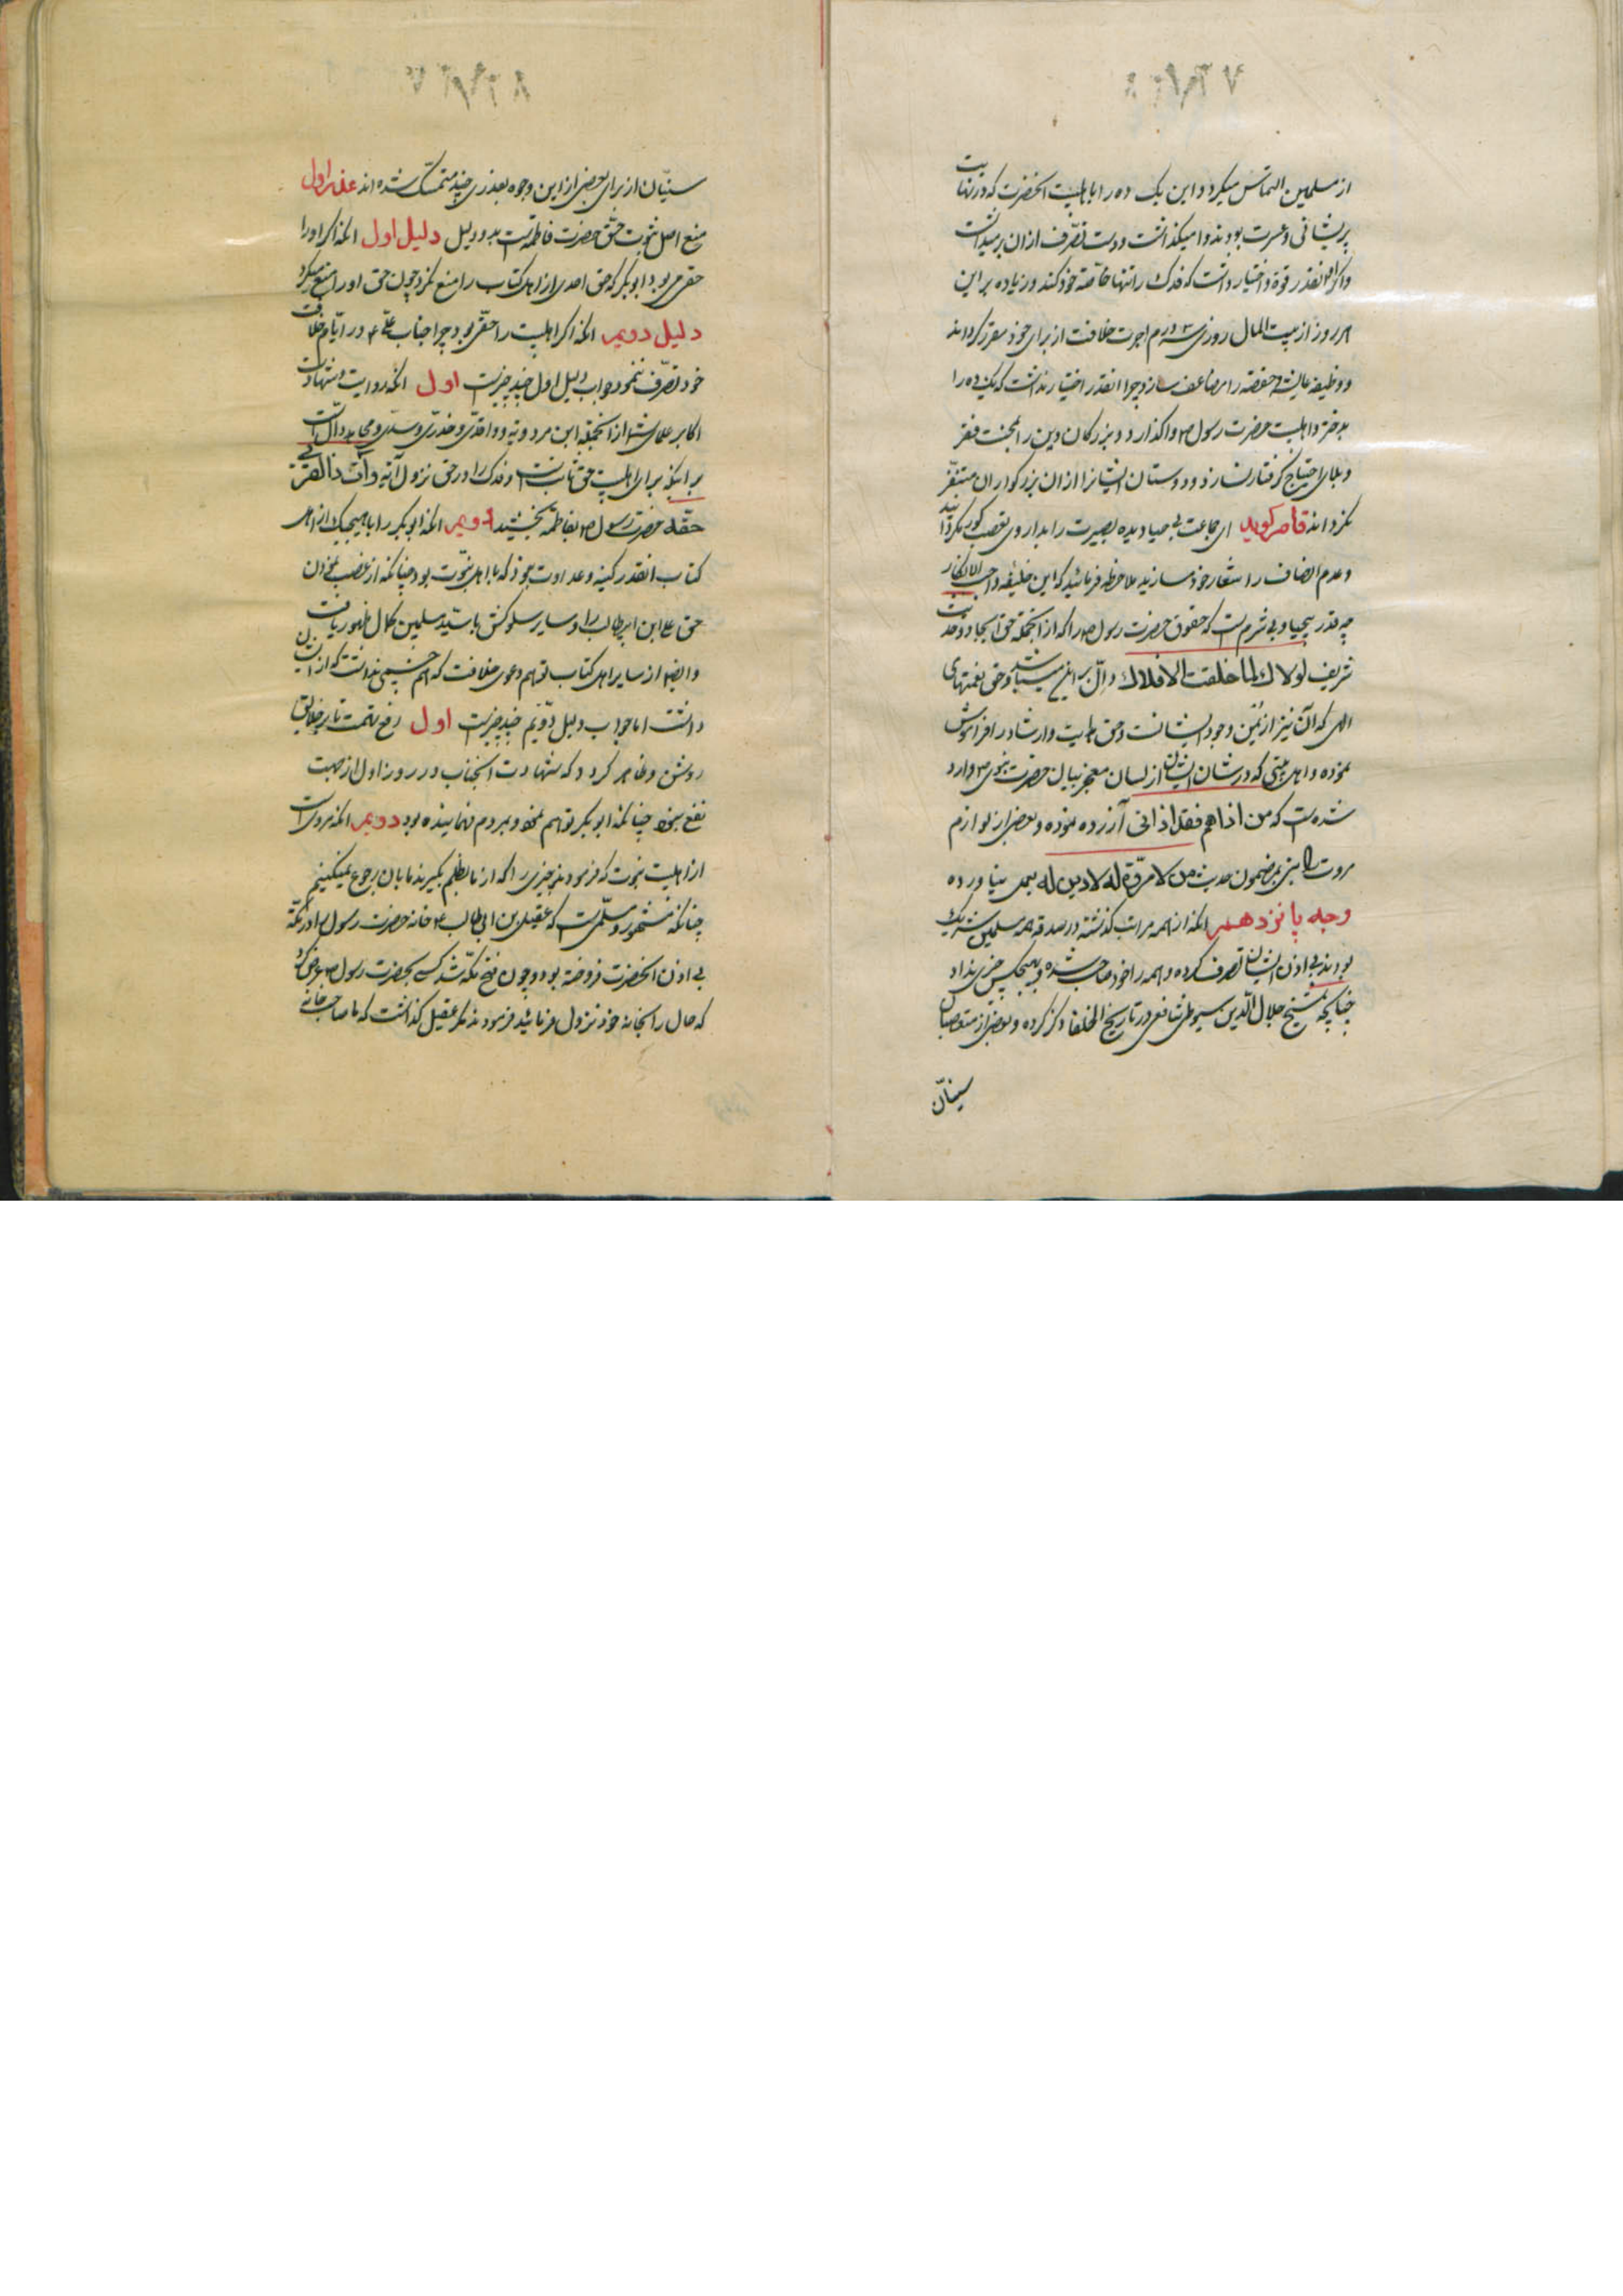 از مسلمین التماس میکرد و این یک ده را باهلبیت انحضرت که در نهایت
پریشانی و عسرت بودند وا میگذاشت و دست تصرف از ان بر میداشت
واکر انقدر قوة و اختیار داشت که فدک را تنها خاصهٔ خود کند و زیاده بر این
هر روز از بیت المال روزی سه درم اجرت خلافت از برای خود مقرر کرداند
و وظیفهٔ عایشه و حفصه را مضاعف سازد چرا انقدر اختیار نداشت که یکده را
بدختر و اهلبیت حضرت رسول ص واکذارد و بزرکان دین را بمحنت فقر
و بلای احتیاج کرفتار نسازد و دوستان ایشانرا از ان بزرکواران متنفر
نکرداند قاصر کوید ای جماعت بی حیا دیده بصیرت را بداروی تعصب کور نکردانید
و عدم انصاف را شعار خود مسازید ملاحظه فرمائید که این خلیفه واجب الانکار
چه قدر بیحیا و بی شرم است که حقوق حضرت رسول ص را که از انجمله حق ایجاد و حدیث
شریف لولاک لما خلقت الافلاک دال بر این میباشد و حق نعمتهای
الهی که آن نیز از یمن وجود ایشانست و حق هدایت و ارشاد را فراموش
نموده و اهل بیتی که در شان ایشان از لسان معجز بیان حضرت نبوی ص وارد
شده است که من اذاهم فقد اذانی آزرده نموده و بعضی از لوازم
مروت را نیز بمضمون حدیث من لا مروّة له لا دین له بعمل نیاورده
وجه پانزدهم انکه از همه مراتب کذشته در صدقه همه مسلمین شریک
بودند بی اذن ایشان تصرف کرده و همه را خود صاحب شده و بهیچکس چیزی نداد
چنانچه شیخ جلال الدین سیوطی شافعی در تاریخ الخلفا ذکر کرده و بعضی از متعصبان
سینان
سنیّان از برای بعضی از این وجوه بعذری چند متمسک شده اند عذر اول
منع اصل ثبوت حقّ حضرت فاطمه است بدو دلیل دلیل اول انکه اکر او را
حقی می بود ابوبکر که حق احدی از اهل کتاب را منع نکرد چون حق او را منع میکرد
دلیل دویم انکه اکر اهلبیت را حقی بود چرا جناب علی ع در ایام خلافت
خود تصرف ننمود جواب دلیل اول چند چیز است اول انکه روایت و شهادت
اکابر علمای شما از انجمله ابن مردویه و واقدی و خدری و سدی و مجاهد دال است
بر اینکه برای اهلبیت حق ثابت است و فدک را در حق نزول آیه و آت ذا القربی
حقه حضرت رسول ص بفاطمه بخشید دویم انکه ابوبکر را با هیچیک از اهل
کتاب انقدر کینه و عداوت نبود که با اهل نبوت بود چنانکه از غصب نمودن
حق علی ابن ابیطالب را و سایر سلوکش با سید مسلمین کمال ظهور یافت
و ایضا از سایر اهل کتاب توهم دعوی خلافت که هم چشمی نداشت که از ایشان
داشت اما جواب دلیل دویم چند چیز است اول رفع تهمت تا بر خلایق
روشن و ظاهر کردد که شهادت انجناب در روز اول از جهت
نفع نبود چنانکه ابوبکر توهم نمود و بمردم فهمانیده بود دویم انکه مرویست
از اهلبیت نبوت که فرمودند چیزی را که از ما بظلم بکیرند ما بان رجوع نمیکنیم
چنانکه مشهور و مسلّمی است که عقیل بن ابی طالب ع خانه حضرت رسول را در مکّه
بی اذن انحضرت فروخته بود و چون فتح مکه شد کسی بحضرت رسول ص عرض کرد
که حال را بخانهٔ خود نزول فرمائید فرمودند مکر عقیل کذاشت که ما صاحب خانه